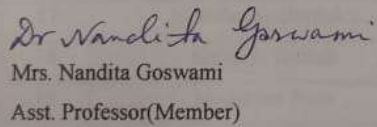 Dr Nandita Goswami
Mrs. Nandita Goswami
Asst. Professor(Member)